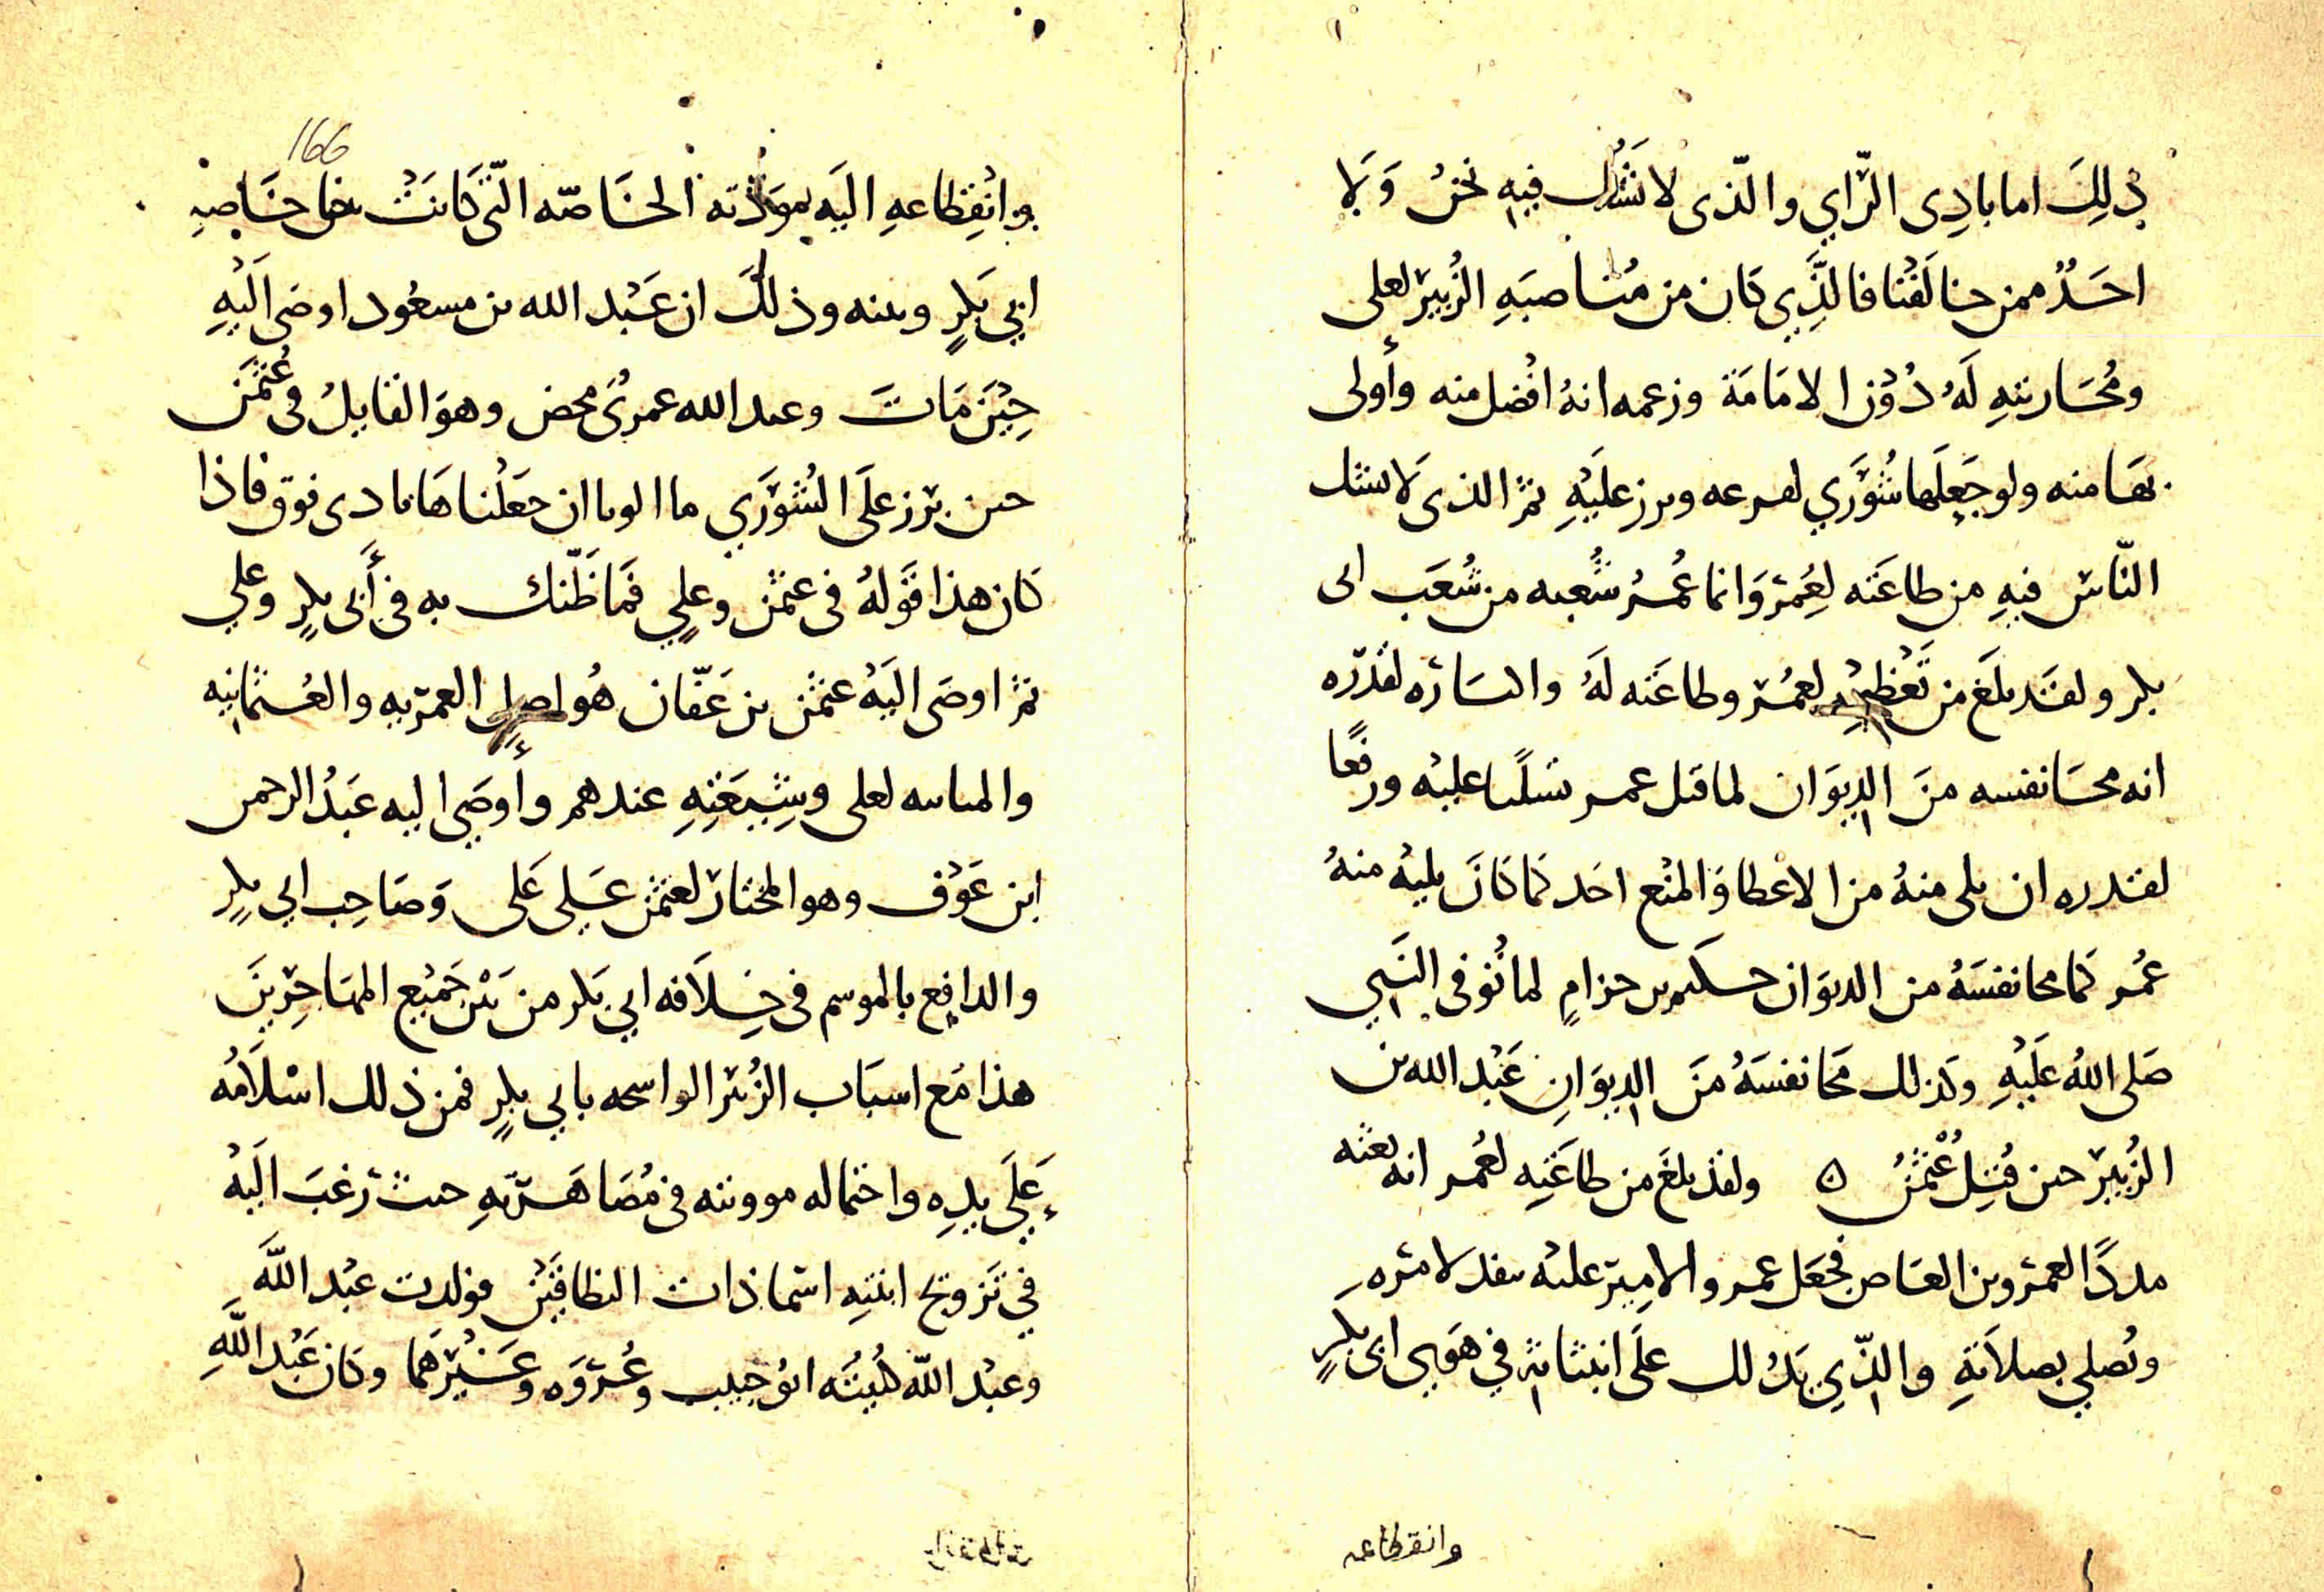 ذلِكَ اما بادِى الرَّاي والّذى لا نَشُك فيهِ نحنُ وَلا
احَدٌ ممن خالَفَنا فالَّذِي كان من مُناصبَهِ الزُبير لعلى
ومُحَاربتهِ لَهُ دُوْن الامَامَة وزعمه انهُ افْضل منه وأولى
بهَا منه ولو جَعِلَها شُوْرَي لقرعه وبرز علَيْهِ ثم الذى لا يشك
النّاس فيهِ من طاعَته لعُمَر وَانما عُمرُ شُعبه من شُعَب ابى
بكر ولقَد بلَغ من تَعْظيْمِهِ لعمُر وطاعَته لَهُ واتسَاره لقدره
انه محَا نفسه منَ الدِيوَان لما قتل عمر تسَلّبا عليْه ورفعًا
لقدره ان يلى منهُ من الاعْطا وَالمنْع احَد كما كانَ يليْه منهُ
عُمر كما محا نفسَهُ من الديوَان حكيم بن حزامٍ لما تُوفى النَبي
صَلى اللهُ علَيْهِ وكذلك مَحَا نفسَهُ منَ الدِيوَانِ عَبْد الله بن
الزُبير حين قُتِل عُثمٰنُ ۝ ولقَد بلَغَ من طاعَتِه لعُمر انه بعثه
مددًا لعمرو بن العَاص فجعَل عمرو الامِير عليْه ينفد لامره
ويُصلي بصلاَتهِ والذّي يَدُلك علَى انبثاثه في هَوى ابى بكرٍ
وانقطاعه
166
وانْقِطاعهِ اليَه بموَدّته الخَاصّه الّتي كَانَتْ خاصَهِ
ابي بَكرٍ وبينه وذلكَ ان عَبْد الله بن مسعُود اوصَى الَيْهِ
حِيْنَ مَاتَ وعبد الله عمرىٌ محض وهوَ القايلُ فى عُثمٰن
حين برز علَى الشُوْرَي ما الونا ان جعَلْناهَا نادى فوق فاذا
كان هذا قوْلهُ فى عثمٰن وعلِيٍ فمَا ظَنّك به فى أَبى بكرٍ وعلي
ثم اوصَى اليَهْ عثمٰن بن عَفّان هُو اصل العمريه والعُثمانيه
والمباينه لعلى وشِيْعَتِهِ عندهم وأوصَى اليه عَبْدُ الرحمن
ابن عَوْف وهو المختار لعثمٰن عَلى عَلى وَصَاحِب ابي بكرٍ
والدافِع بالموسم فى خِلاَفه ابي بَكر من بَيْن جَميْع المهَاجِرينَ
هذا مَع اسبَاب الزُبير الواسحه بابي بكرٍ فمن ذلك اسْلاَمُه
عَلَي يدِه واحتماله موونته فى مُصَاهَرتهِ حيث رَغبَ اليَهْ
في تَزويج ابنتِهِ اسْما ذات النطاقَيْن فولدت عبْد اللهَ
وعبْد الله كُنيتُه ابُو خبيب وعُروَه وغَيْرَهما وكان عَبْد اللهِ